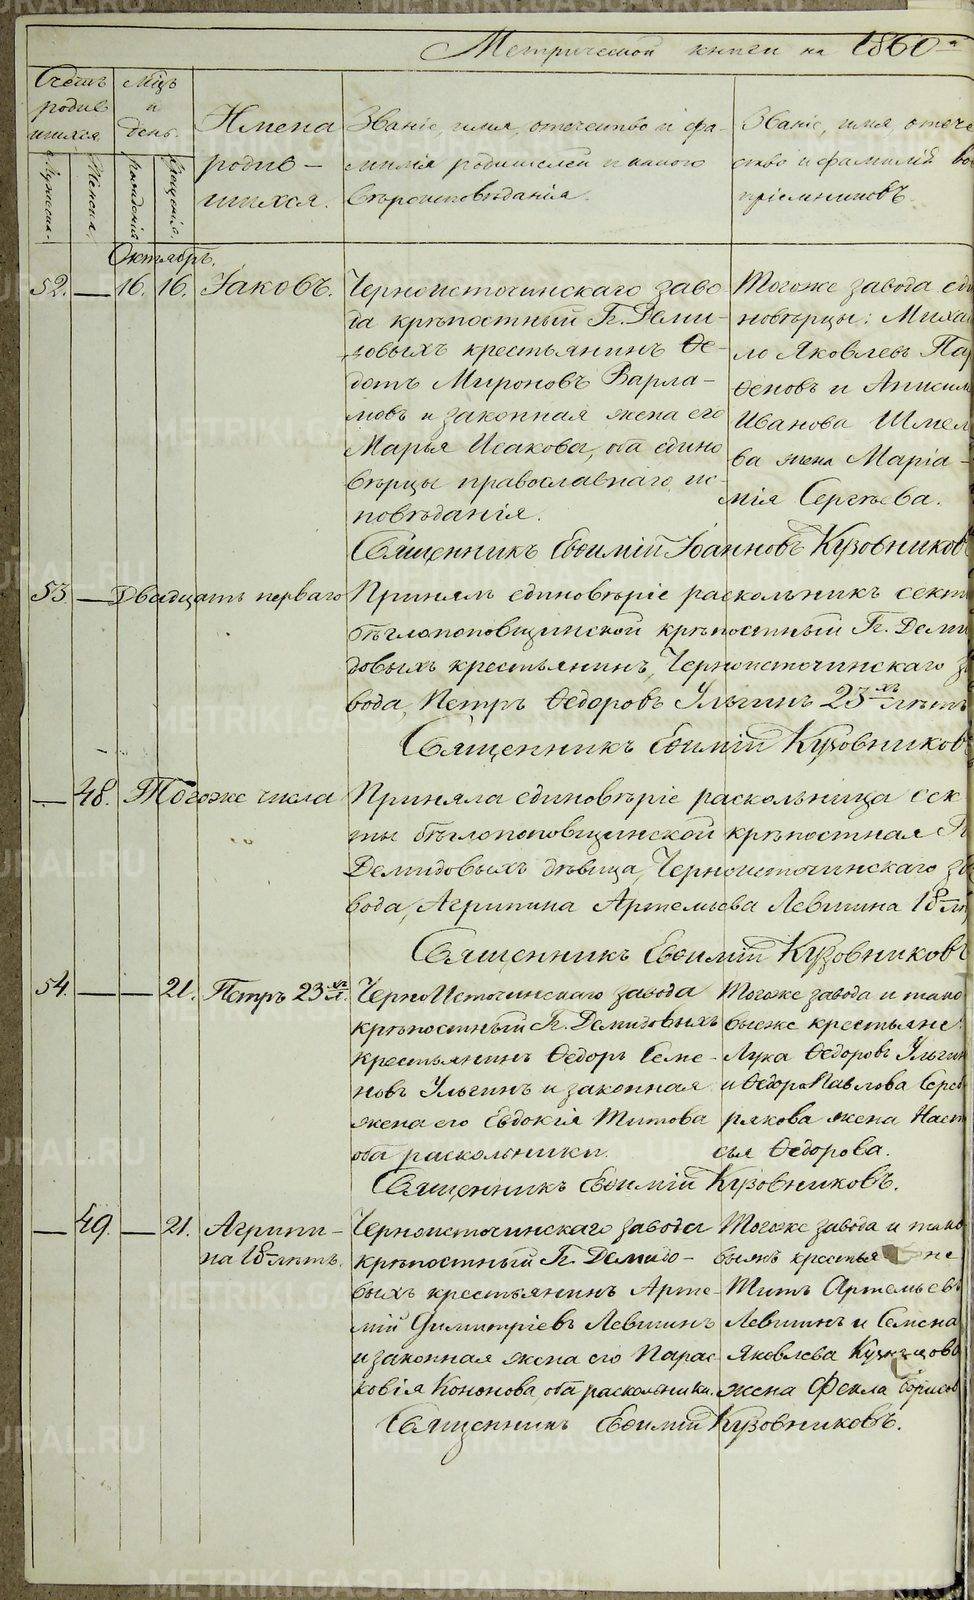 Метрической книги на 1860 г.
Счетъ родившихся.
Мужеска.
Женска.
Мѣцъ и день.
Рожденія
Крещенія.
Имена родив-
шихся.
Званіе, имя, отечество и фа-
милія родителей и какого
вѣроисповѣданія.
Званіе, имя, отече
ство и фамилія во
пріемниковъ.
Октябрь.
52. — 16. 16. Іаковъ.
Черноисточинскаго заво-
да крѣпостный Гг. Деми-
довыхъ крестьянинъ Ѳе-
дотъ Мироновъ Варла-
мовъ и законная жена его
Марья Исакова, оба едино
вѣрцы православнаго ис-
повѣданія.
Тогоже завода еди
новѣрцы: Михай
ло Яковлевъ Пар
ѳеновъ и Анисима
Иванова Шмел
ва жена Маріа-
мія Сергѣева.
Священникъ Евѳимій Іоанновъ Кузовниковъ
53. — Двадцать перваго
Принялъ единовѣріе раскольникъ секты
бѣглопоповщинской крѣпостный Гг. Деми
довыхъ крестьянинъ, Черноисточинскаго за
вода, Петръ Ѳедоровъ Ульгинъ 23хъ лѣтъ
Священникъ Евѳимій Кузовниковъ
— 48. Тогоже числа
Приняла единовѣріе раскольница сек
ты бѣглопоповщинской крѣпостная Гг
Демидовыхъ дѣвица, Черноисточинскаго за
вода, Агрипина Артемьева Левшина 18 лѣ
Священникъ Евѳимій Кузовниковъ
54. — — 21. Петръ 23хъ л.
ЧерноИсточинскаго завода
крѣпостный Гг. Демидовыхъ
крестьянинъ Ѳедоръ Семе-
новъ Ульгинъ и законная
жена его Евдокія Титова
оба раскольники.
Тогоже завода и тако
выеже крестьяне:
Лука Ѳедоровъ Ульгин
и Ѳедора Павлова Сереб
рякова жена Наст
сья Ѳедорова.
Священникъ Евѳимій Кузовниковъ.
— 49. — 21. Агрипи-
на 18 лѣтъ.
Черноисточинскаго завода
крѣпостный Гг. Демидо-
выхъ крестьянинъ Арте-
мій Димитріевъ Левшинъ
и законная жена его Парас
ковія Кононова, оба раскольники.
Тогоже завода и тако
выежъ крестья не
Титъ Артемьевъ
Левшинъ и Семена
Яковлева Кузнецова
жена Фекла Борисов
Священникъ Евѳимій Кузовниковъ.
METRIKI.GASO-URAL.RU